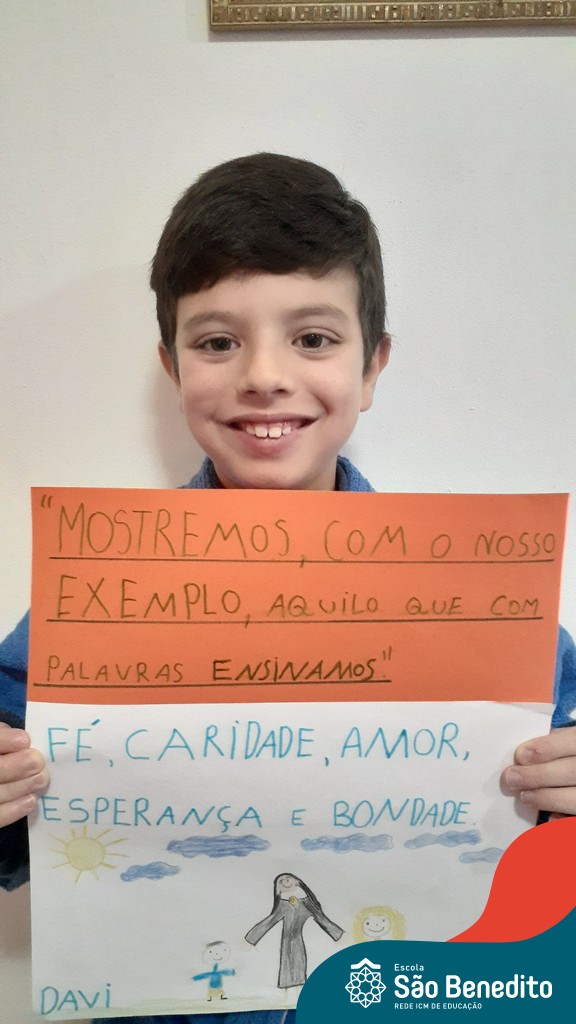 "MOSTREMOS, COM O NOSSO
EXEMPLO, AQUILO QUE COM
PALAVRAS ENSINAMOS."
FÉ, CARIDADE, AMOR,
ESPERANÇA E BONDADE.
DAVI
Escola
São Benedito
REDE ICM DE EDUCAÇÃO